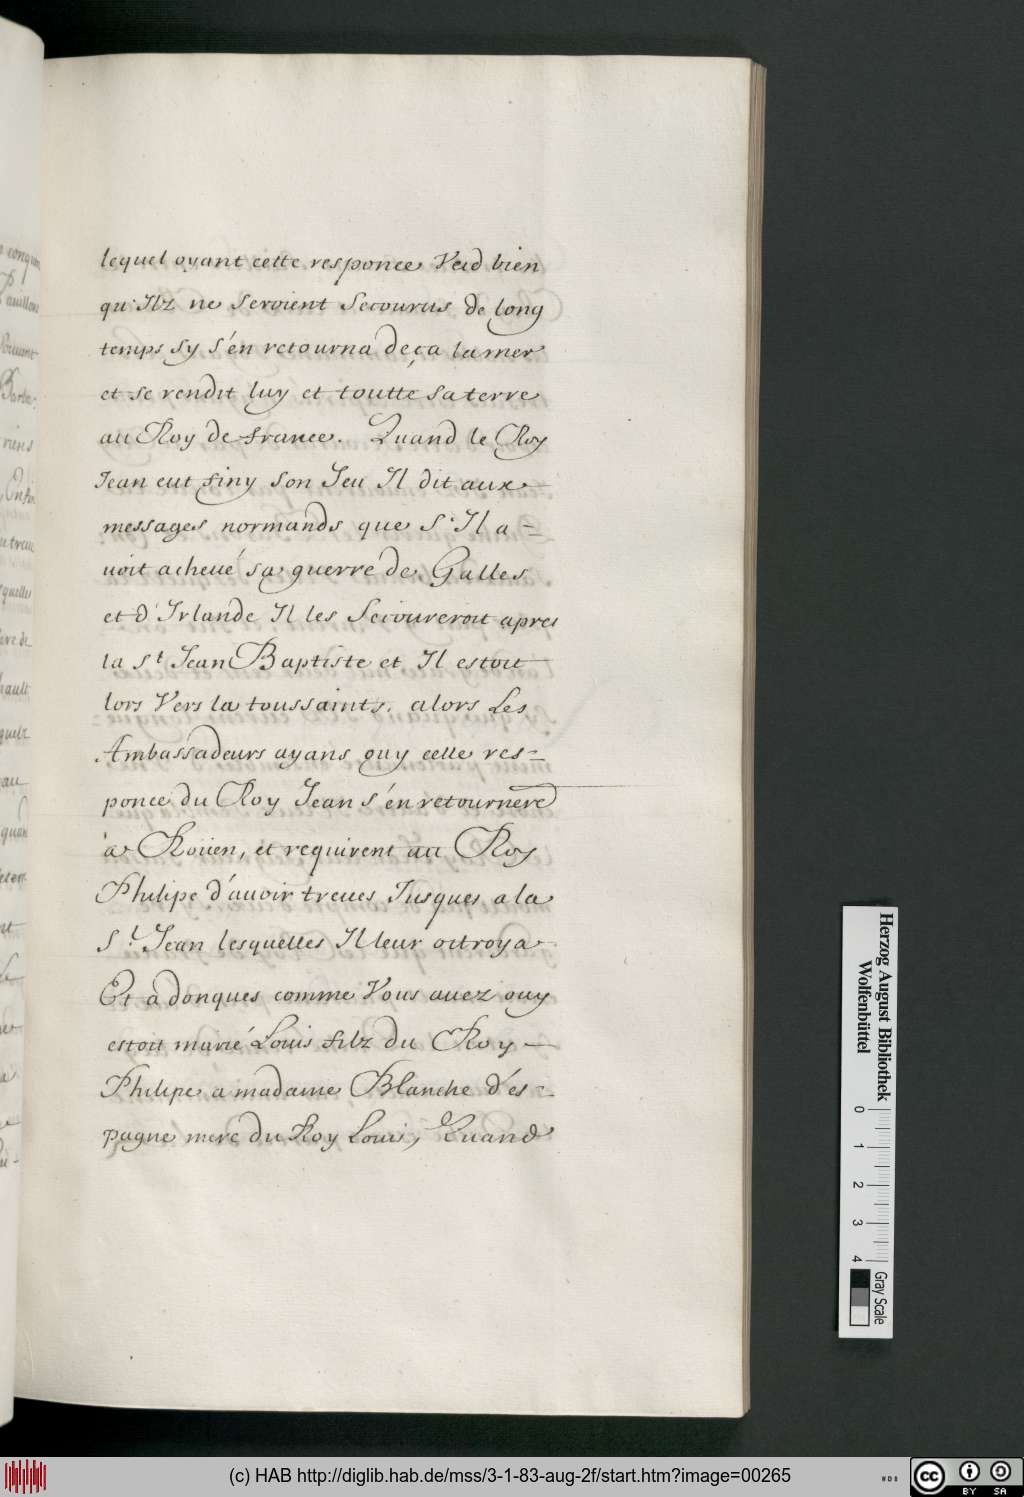 lequel oyant cette responce Veid bien
qu'Ilz ne seroient secourus de long
temps sy s'en retourna deça la mer
et se rendit luy et toutte sa terre
au Roy de france. Quand le Roy
Jean eut finy son Jeu Il dit aux
messages normands que s'Il a=
uoit acheué sa guerre de Galles
et d'Irlande Il les secoureroit apres
la St Jean Baptiste et Il estoit
lors Vers la toussaints. alors Les
Ambassadeurs ayans ouy celle res=
ponce du Roy Jean s'en retournere
à Roüen, et requirent au Roy
Philipe d'auoir treues Jusques a la
St. Jean lesquelles Il leur octroya
Et adonques comme Vous auez ouy
estoit marié Louis filz du Roy —
Philipe a madame Blanche d'es=
pagne mere du Roy Louis, Quand
Herzog August Bibliothek
Wolfenbüttel
0 1 2 3 4
Gray Scale
(c) HAB http://diglib.hab.de/mss/3-1-83-aug-2f/start.htm?image=00265
cc BY SA